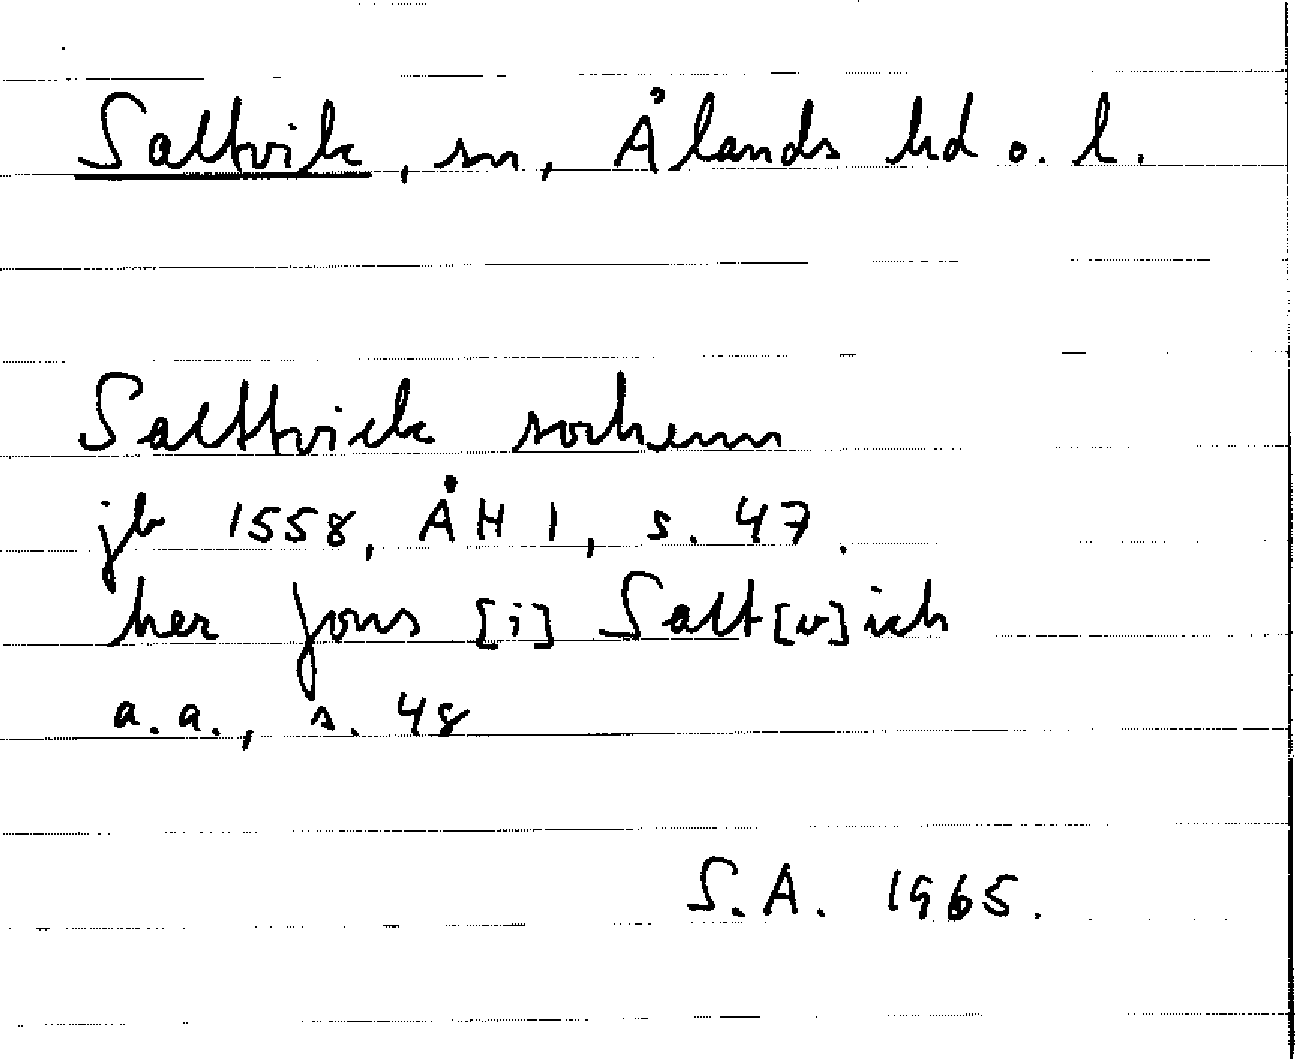 Saltvik, sn, Ålands hd o. l.
Salttvick sockenn
jb 1558, ÅH 1, s. 47.
her Jons [i] Salt[v]ich
a.a., s. 48
S.A. 1965.